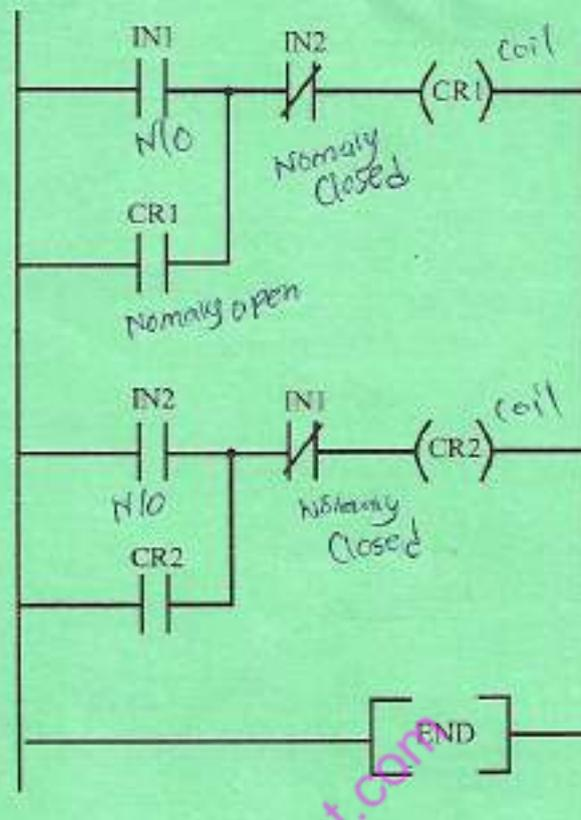 IN1 IN2 coil
(CR1)
N/O Nomaly
Closed
CR1
Nomaly open
IN2 IN1 coil
(CR2)
N/O
Closed
CR2
END
t.com